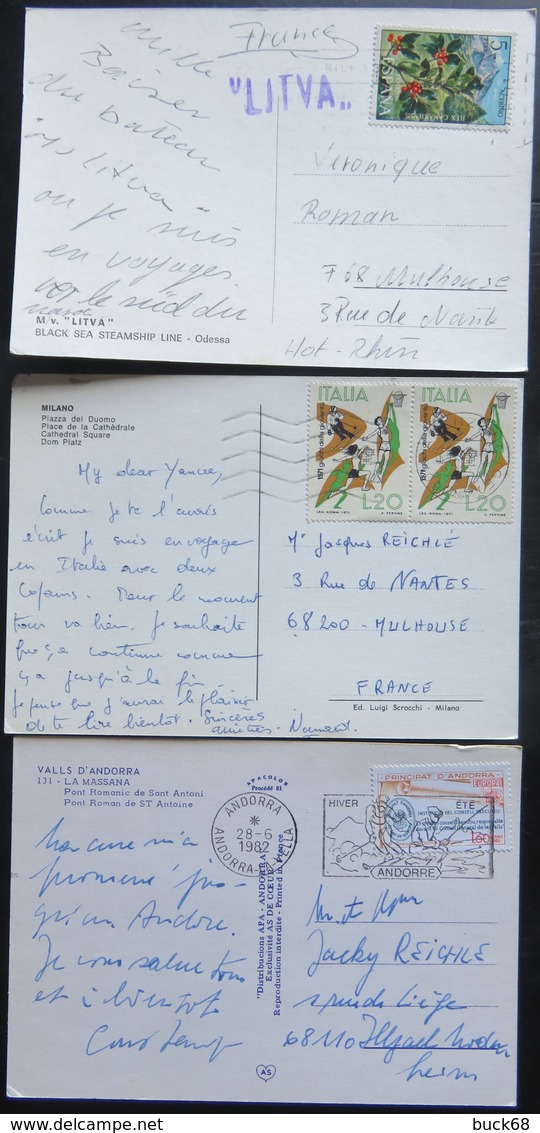 mille
Baiser
du bateau
"Litva"
ou je suis
en voyages
le sud du
M/v. "LITVA"
BLACK SEA STEAMSHIP LINE - Odessa
France
"LITVA"
5
ESPAÑA
ILEX CANARIENSIS
Veronique
Roman
768 Mulhouse
3 Rue de Nant
Hot-Rhin
MILANO
Piazza del Duomo
Place de la Cathèdrale
Cathedral Square
Dom Platz
ITALIA
ITALIA
1971 giochi della gioventù
1971 giochi della gioventù
L.20
L.20
My dear Yancee,
Comme je te l'avais
écrit je suis en voyage
en Italie avec deux
Copains. Pour le moment
tout va bien. Je souhaite
que ça continue comme
ça jusqu'à la fin
je pense que j'aurai le plaisir
de te lire bientôt. Sincères
amitiés.
Mr Jacques REICHLÉ
3 Rue de NANTES
68200 - MULHOUSE
FRANCE
Ed. Luigi Scrocchi - Milano
VALLS D'ANDORRA
131 - LA MASSANA
Pont Romanic de Sant Antoni
Pont Roman de ST Antoine
APACOLOR
Procédé 81
"Distribucions APA - ANDORRA"
Exclusivité AS DE CŒUR
Reproduction interdite - Printed in Europe
ANDORRA
28-6
1982
ANDORRA-LA-VIELLA
HIVER
ÉTÉ
ANDORRE
PRINCIPAT D'ANDORRA
EUROPA
1,60
m'a
promené jus-
qu'en Andorre.
Je vous salue tous
et à bientôt
Jacky REICHLE
rue de Liège
68110 Illzach Moden
heim
AS
buck68